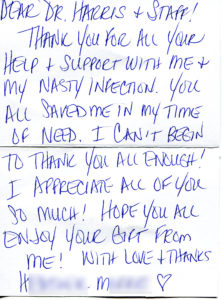 DEAR DR. HARRIS & STAFF!
THANK YOU FOR ALL YOUR
HELP & SUPPORT WITH ME &
MY NASTY INFECTION. YOU
ALL SAVED ME IN MY TIME
OF NEED. I CAN'T BEGIN
TO THANK YOU ALL ENOUGH!
I APPRECIATE ALL OF YOU
SO MUCH! HOPE YOU ALL
ENJOY YOUR GIFT FROM
ME! WITH LOVE & THANKS
H M ♡